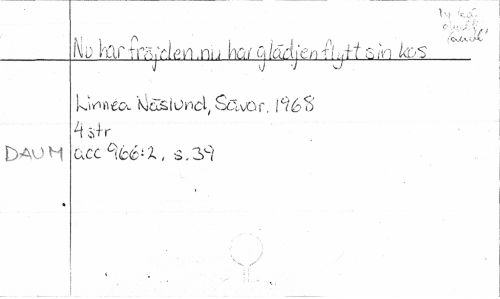 Nu har fröjden, nu har glädjen flytt sin kos
Linnea Näslund, Sävar. 1968
4 str
DAUM acc 966:2, s. 39